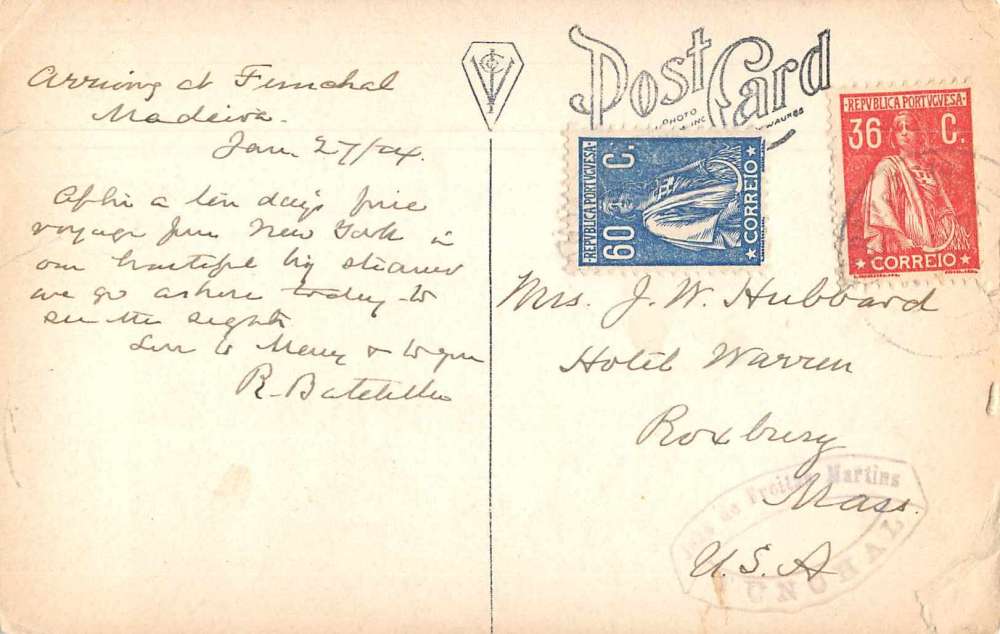 Post Card
PHOTO
Arriving at Funchal
Madeira.
Jan. 27/24.
After a ten days fine
voyage from New York in
our beautiful big steamer
we go ashore today to
see the sights
Love to Mercy & to you
R.
REPVBLICA PORTVGVESA
60 C.
CORREIO
REPVBLICA PORTVGVESA
36 C.
CORREIO
Mrs. J. W. Hubbard
Hotel Warren
Roxbury
Mass.
U.S.A
de Freitas Martins
UNCHAL